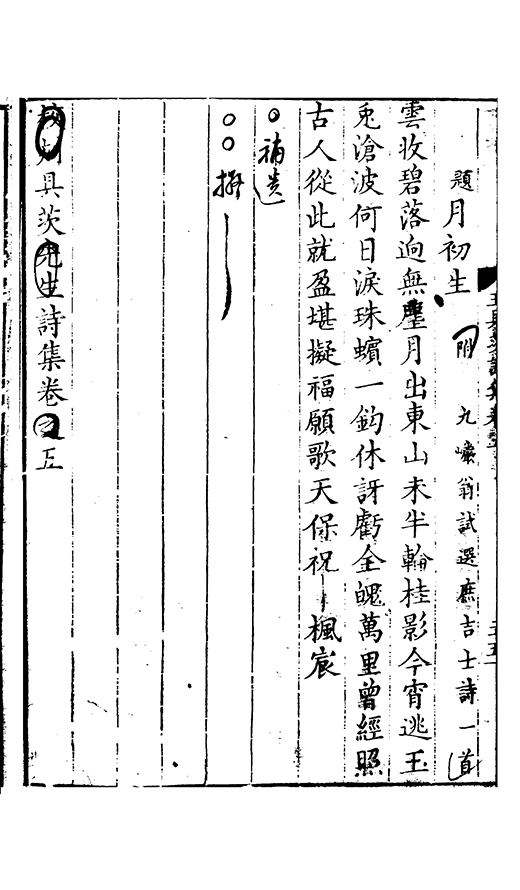 題月初生 附 九嶷翁試選庶吉士詩一首
雲收碧落逈無塵月出東山未半輪桂影今宵逃玉
兎滄波何日淚珠蠙一鈎休訝虧全魄萬里曾經照
古人從此就盈堪擬福願歌天保祝楓宸
補遺
撰
具茨先生詩集卷五